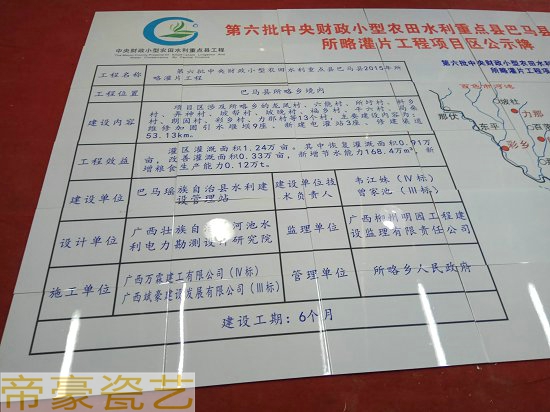 第六批中央财政小型农田水利重点县巴马县
所略灌片工程项目区公示牌
中央财政小型农田水利重点县工程
第六批中央财政小型农田水利重点县巴马
所略灌片工程项
工程名称
第六批中央财政小型农田水利重点县巴马县2015年所
略灌片工程
工程位置
巴马县所略乡境内
建设内容
项目区涉及所略乡的龙凤村、六能村、所圩村、
村、力那村等13个村，主要建设内容为：
维修加固引水堰坝9座、新建电灌站3座、修建渠道
53.13km。
工程效益
灌区灌溉面积1.24万亩，其中恢复灌溉面积0.91万
亩，改善灌溉面积0.33万亩，新增节水能力168.4万m³，新
增粮食生产能力0.12万t。
建设单位
巴马瑶族自治县水利建
设管理站
建设单位技
术负责人
韦江妹（Ⅳ标）
曾家池（Ⅲ标）
设计单位
广西壮族自治区河池水
利电力勘测设计研究院
监理单位
广西柳州明园工程建
设监理有限责任公司
施工单位
广西万霖建工有限公司（Ⅳ标）
广西斌豪建设发展有限公司（Ⅲ标）
管理单位
所略乡人民政府
建设工期：6个月
那伏
东平
力那
彩乡
帝豪瓷艺